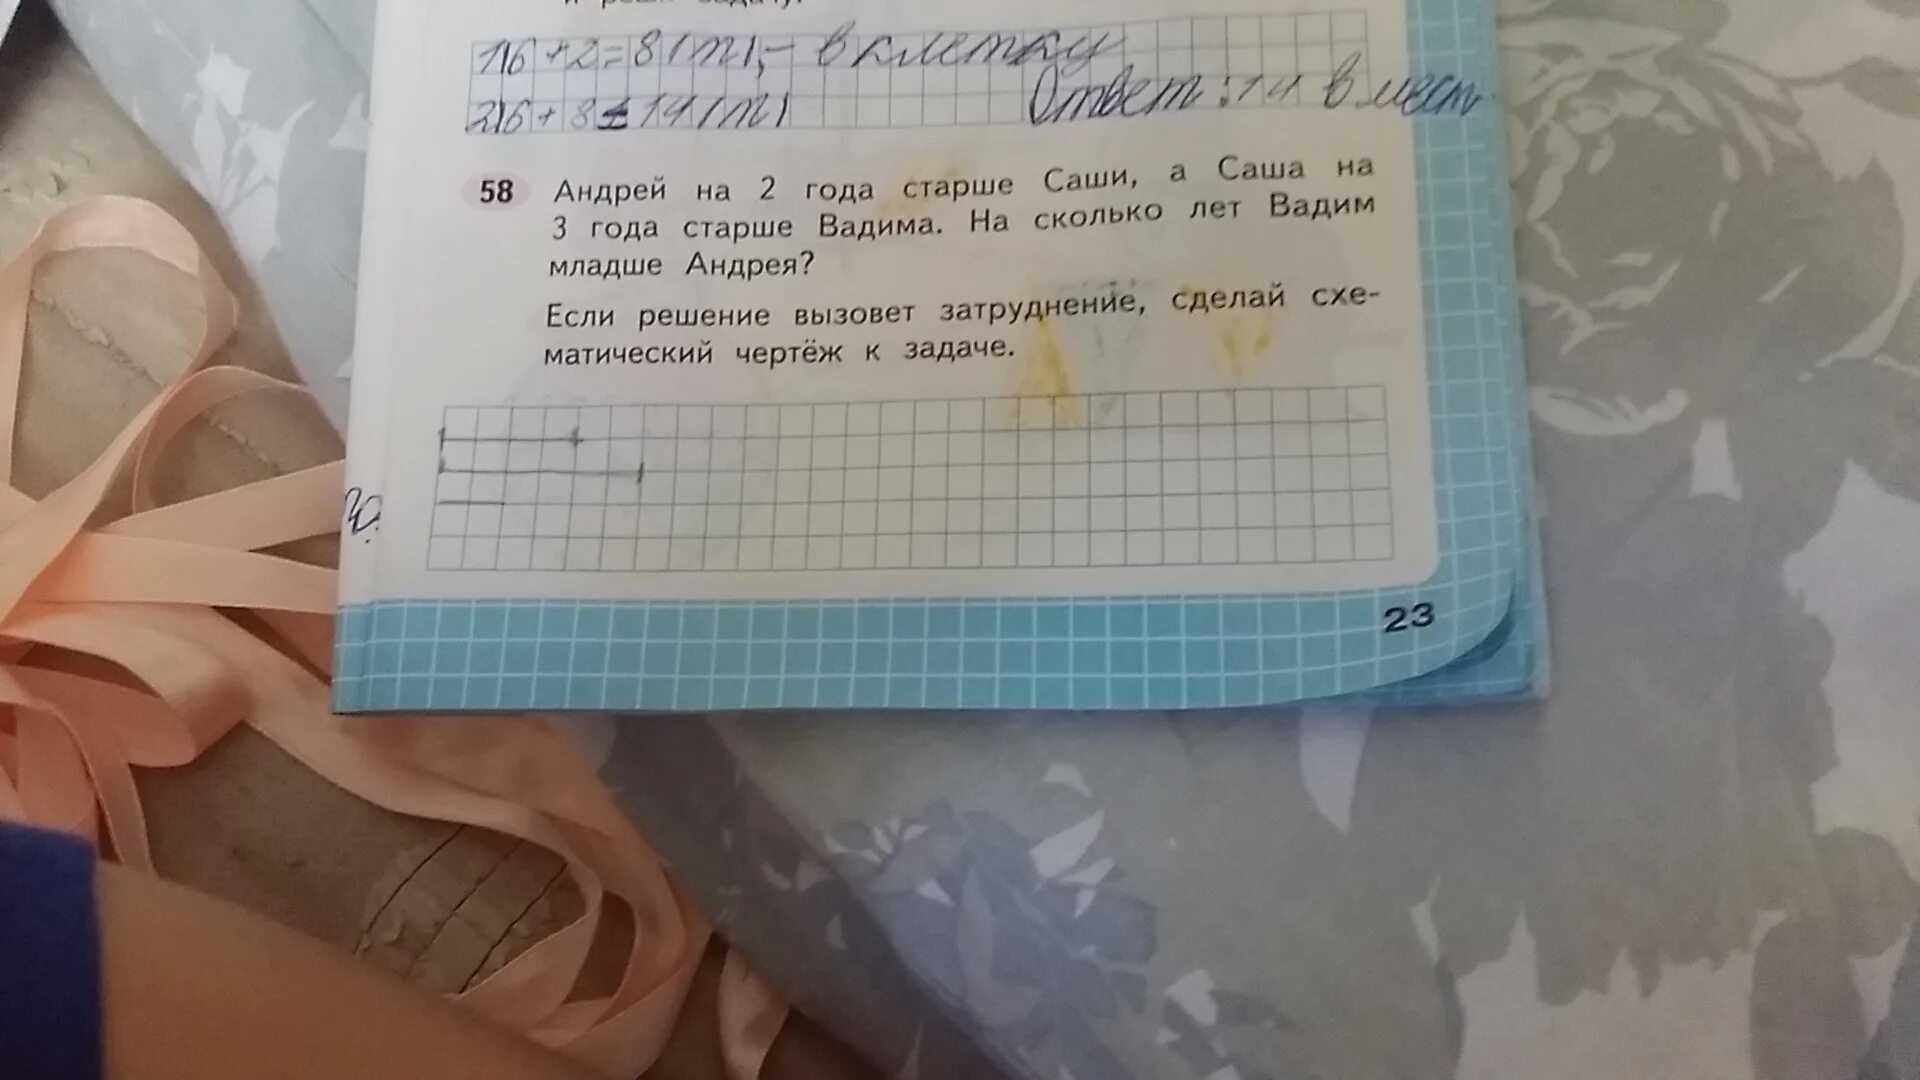 и реши задачу.
1)6+2=8(т),- в клетку
2)6+8=14(т)
Ответ: 14 вмест
58 Андрей на 2 года старше Саши, а Саша на
3 года старше Вадима. На сколько лет Вадим
младше Андрея?
Если решение вызовет затруднение, сделай схе-
матический чертёж к задаче.
23